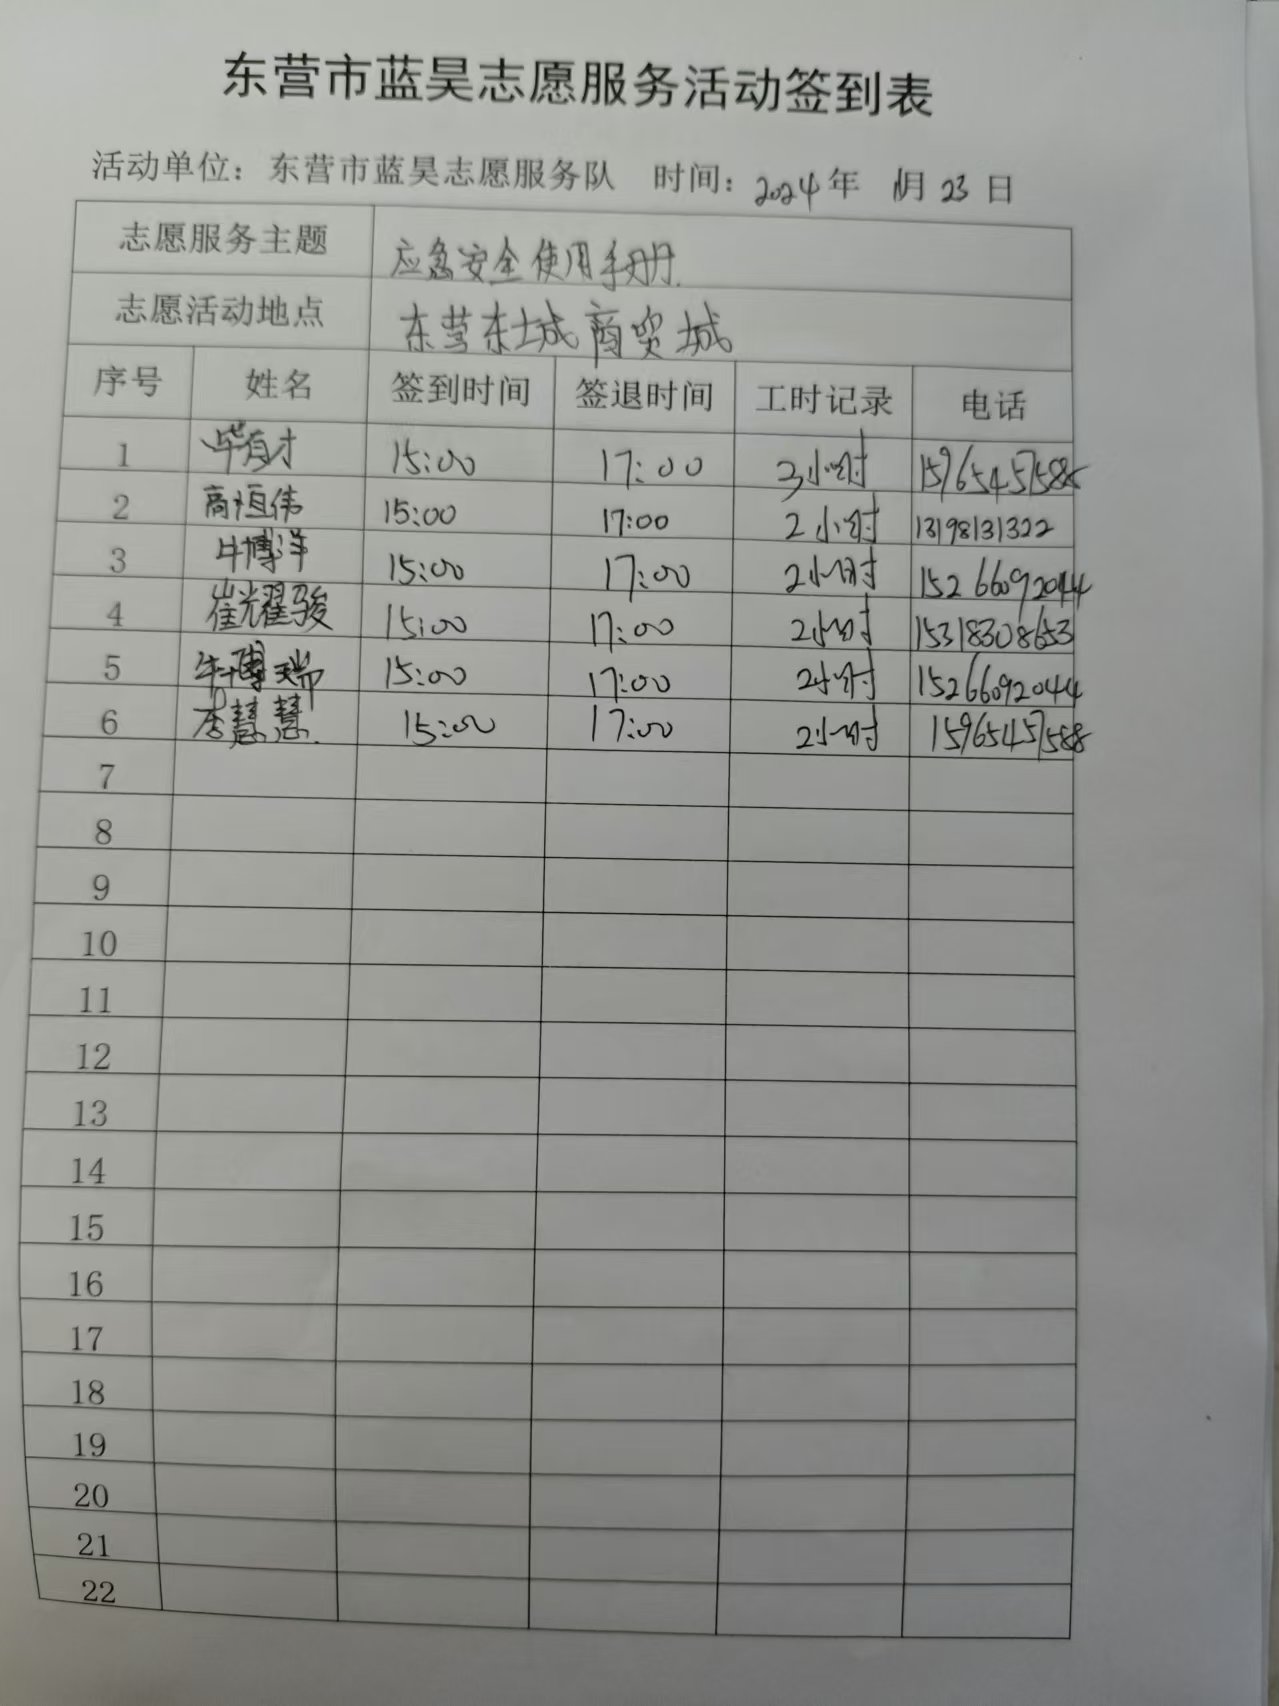 东营市蓝昊志愿服务活动签到表
活动单位：东营市蓝昊志愿服务队 时间：2024年 11月 23 日
志愿服务主题 应急安全使用手册
志愿活动地点 东营东城商贸城
序号 姓名 签到时间 签退时间 工时记录 电话
1 毕有才 15:00 17:00 2小时 15965457588
2 高恒伟 15:00 17:00 2小时 13198131322
3 牛博洋 15:00 17:00 2小时 15266092044
4 崔光耀骏 15:00 17:00 2小时 15318308653
5 牛博瑞 15:00 17:00 2小时 15266092044
6 李慧慧 15:00 17:00 2小时 15965457588
7
8
9
10
11
12
13
14
15
16
17
18
19
20
21
22